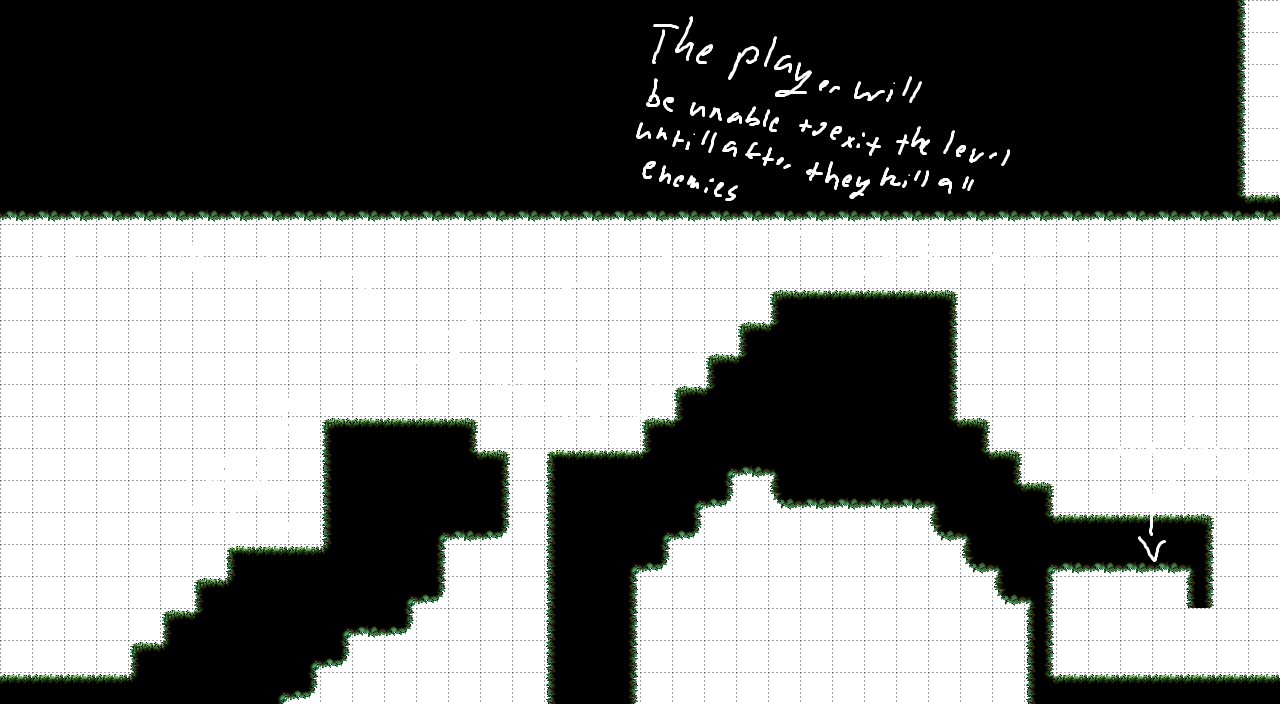 The player will
be unable to exit the level
untill after they kill all
enemies